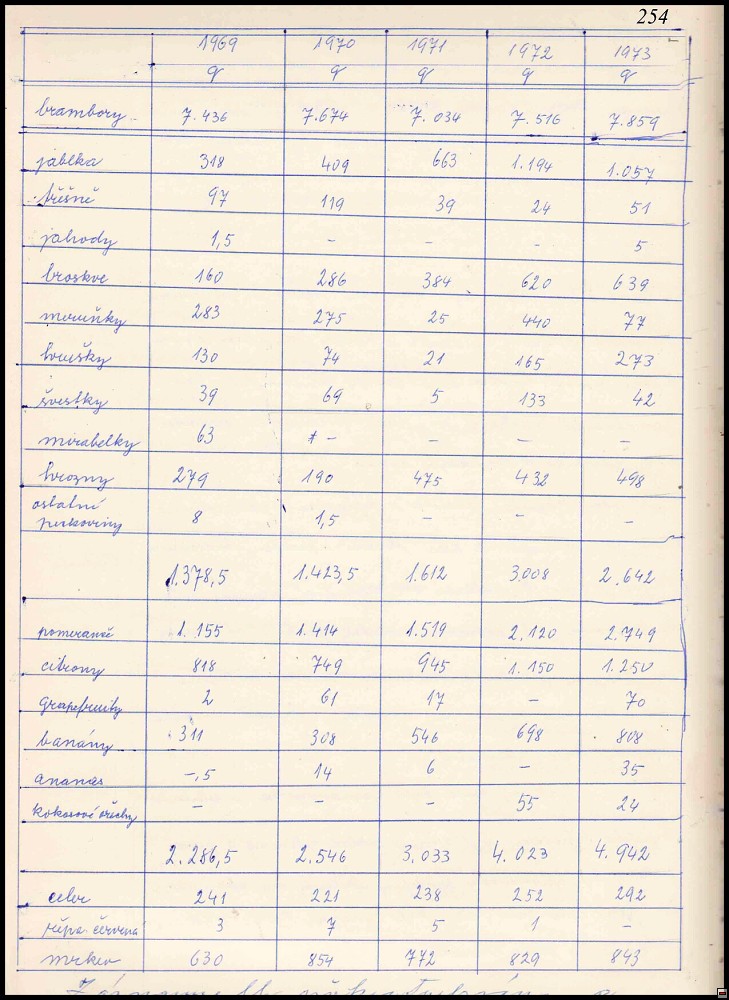 254
1969 1970 1971 1972 1973
q q q q q
brambory 7.436 7.674 7.034 7.516 7.859
jablka 318 409 663 1.194 1.057
třešně 97 119 39 24 51
jahody 1,5 - - - 5
broskve 160 286 384 620 639
meruňky 283 275 25 440 77
hrušky 130 74 21 165 273
švestky 39 69 5 133 42
mirabelky 63 - - - -
hrozny 279 190 475 432 498
ostatní
peckoviny 8 1,5 - - -
1.378,5 1.423,5 1.612 3.008 2.642
pomeranče 1.155 1.414 1.519 2.120 2.749
citrony 818 749 945 1.150 1.250
grapefruity 2 61 17 - 70
banány 311 308 546 698 808
ananas -,5 14 6 - 35
kokosové ořechy - - - 55 24
2.286,5 2.546 3.033 4.023 4.942
celer 241 221 238 252 292
řepa červená 3 7 5 1 -
mrkev 630 854 772 829 843